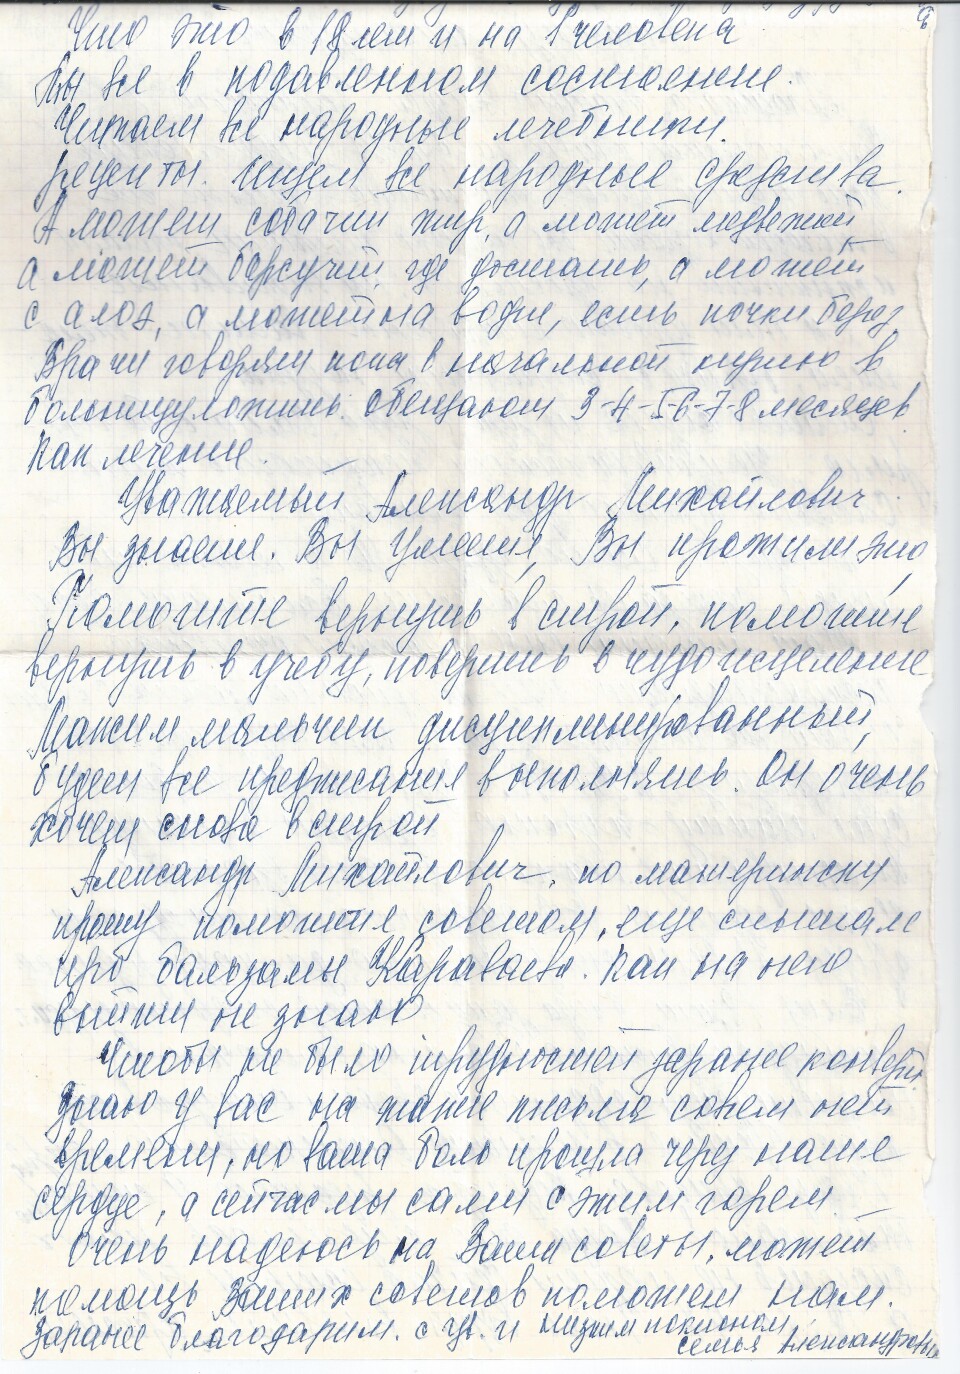 Что это в 18 лет и на 1 человека
Мы все в подавленном состояние.
Читаем все народные лечебники.
рецепты. Ищем все народные средства.
А может собачий жир, а может медвежий
а может барсучий, где достать, а может
с алоэ, а может на водке, есть почки берез.
Врачи говорят пока в начальной нужно в
больницу ложить. Обещают 3-4- 6-7-8 месяцев
как лечение.
Уважаемый Александр Михайлович
Вы знаете. Вы умеете, Вы прожили это,
Помогите вернуть в строй, помогите
вернуть в учебу, поверить в чудо исцеление
Максим мальчик дисциплинированный,
будет все предписания выполнять. Он очень
хочет снова в строй
Александр Михайлович, по матерински
прошу помогите советом, еще слышали
про бальзамы Караваева. Как на него
выйти не знаю
Чтобы не было трудностей заранее конверт.
знаю у вас на такие письма совсем нет
времени, но ваша боль прошла через наше
сердце, а сейчас мы сами с этим горем.
Очень надеюсь на Ваши советы, может
помощь Ваших советов поможет нам.
Заранее благодарим. с ув. и низким поклоном,
семья Александровы